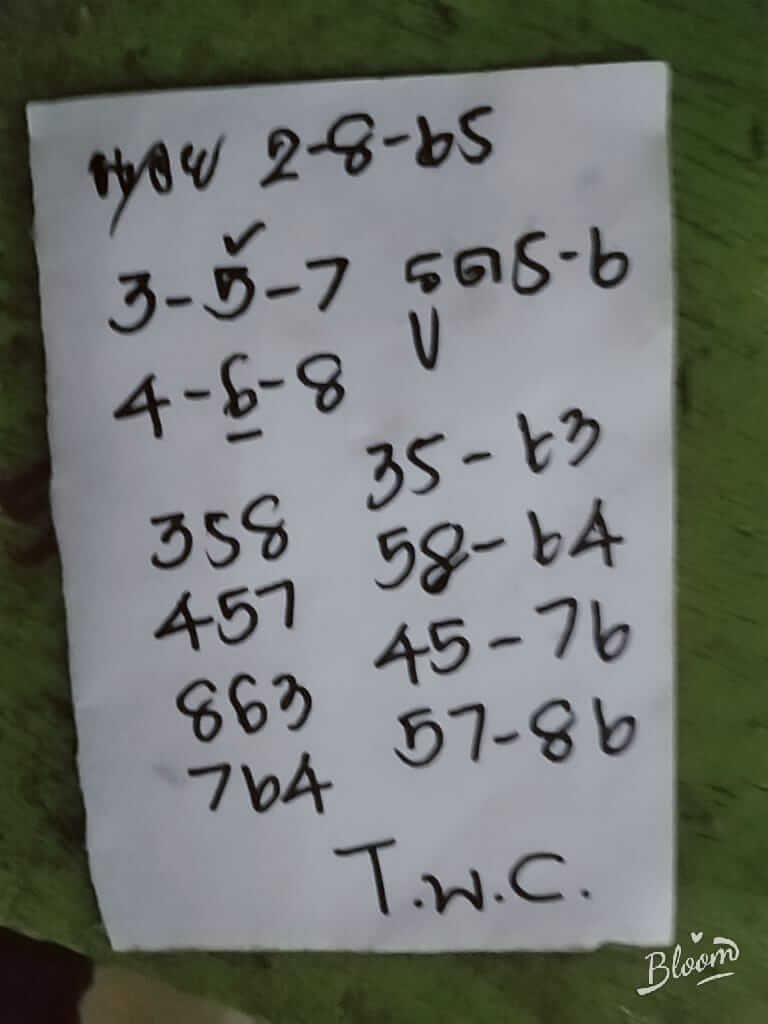 หวย 2-8-65
3-5-7 รูด 5-6
4-6-8 บ
35-63
358
58-64
457
45-76
863
57-86
764
T.W.C.
Bloom